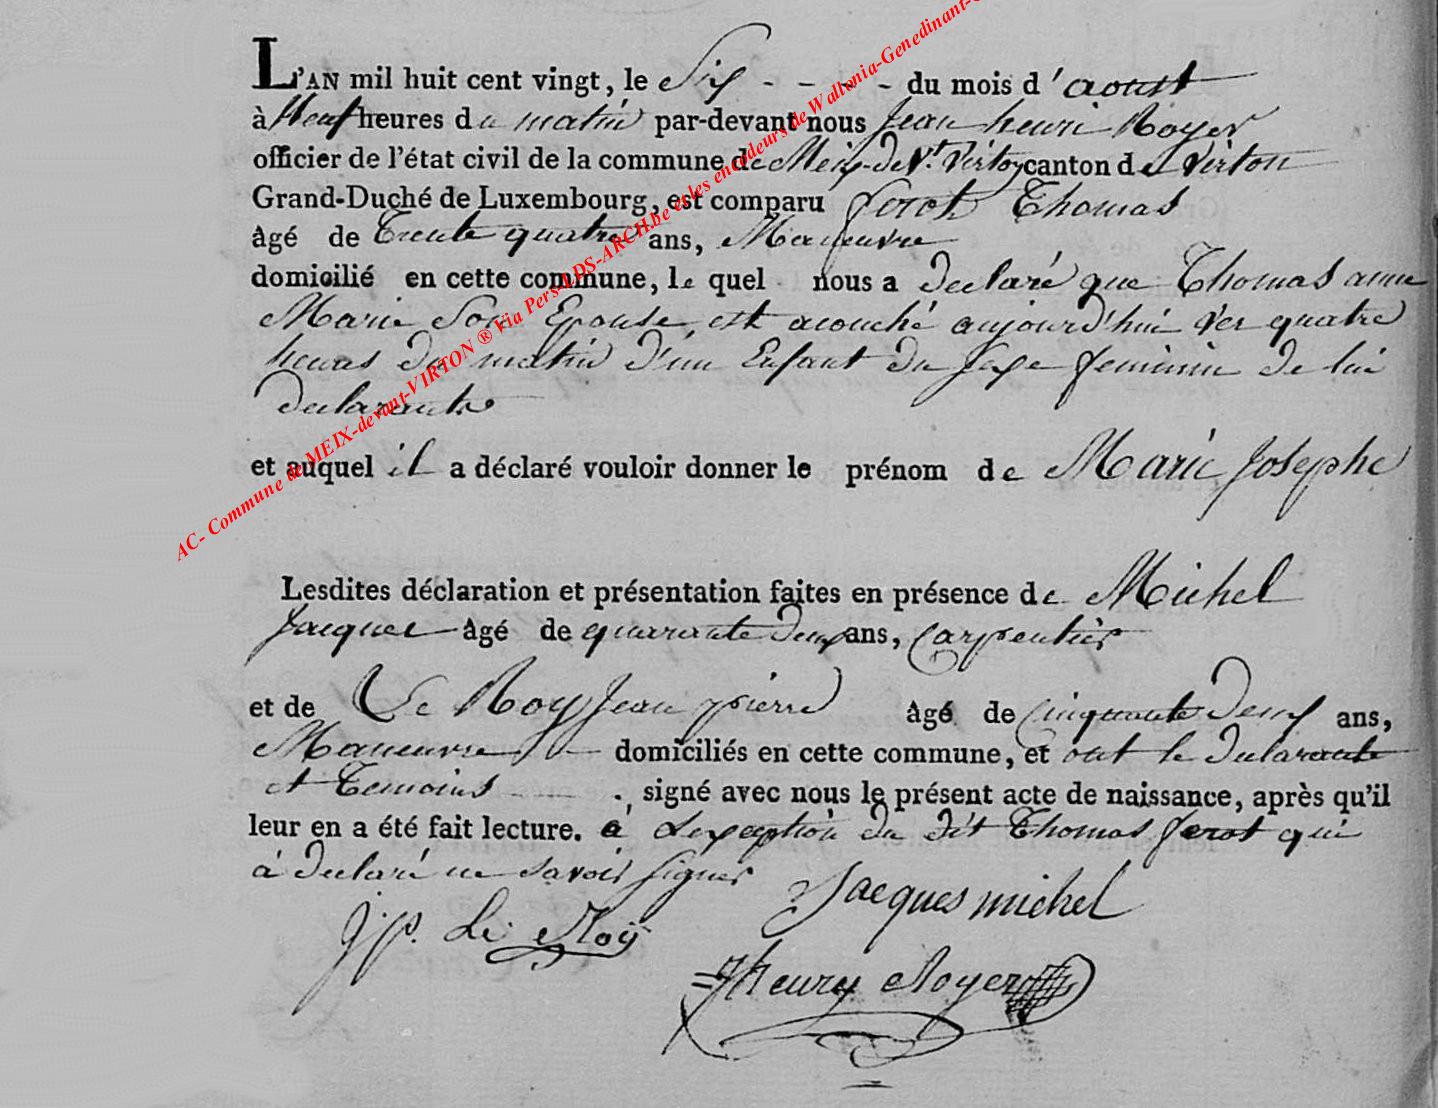 L'AN mil huit cent vingt, le Six - - - - du mois d'aoust
à Neuf heures du matin par-devant nous Jean henri Royer
officier de l'état civil de la commune de Meix-dev.t Virton canton de Virton
Grand-Duché de Luxembourg, est comparu ferot Thomas
âgé de Trente quatre ans, Maneuvre
domicilié en cette commune, le quel nous a declaré que Thomas anne
Marie Son Epouse, est acouché aujourd'hui Ver quatre
heures du matin d'un Enfant du Sexe feminin de lui
declarante
et auquel il a déclaré vouloir donner le prénom de Marie Josephe
Lesdites déclaration et présentation faites en présence de Michel
Jacques âgé de quarante deux ans, Carpentier
et de Le Roy Jean pierre âgé de Cinquante Deux ans,
Maneuvre domiciliés en cette commune, et ont le Declarante
et Temoins signé avec nous le présent acte de naissance, après qu'il
leur en a été fait lecture. à Lexception du dit Thomas ferot qui
à declaré ne savoir signer
Jacques michel
J:p. Le Roÿ
Jhenry Royer
AC- Commune de MEIX-devant-VIRTON ® Via Pers-LDS-ARCH.be et les encodeurs de Wallonia-Genedinant-